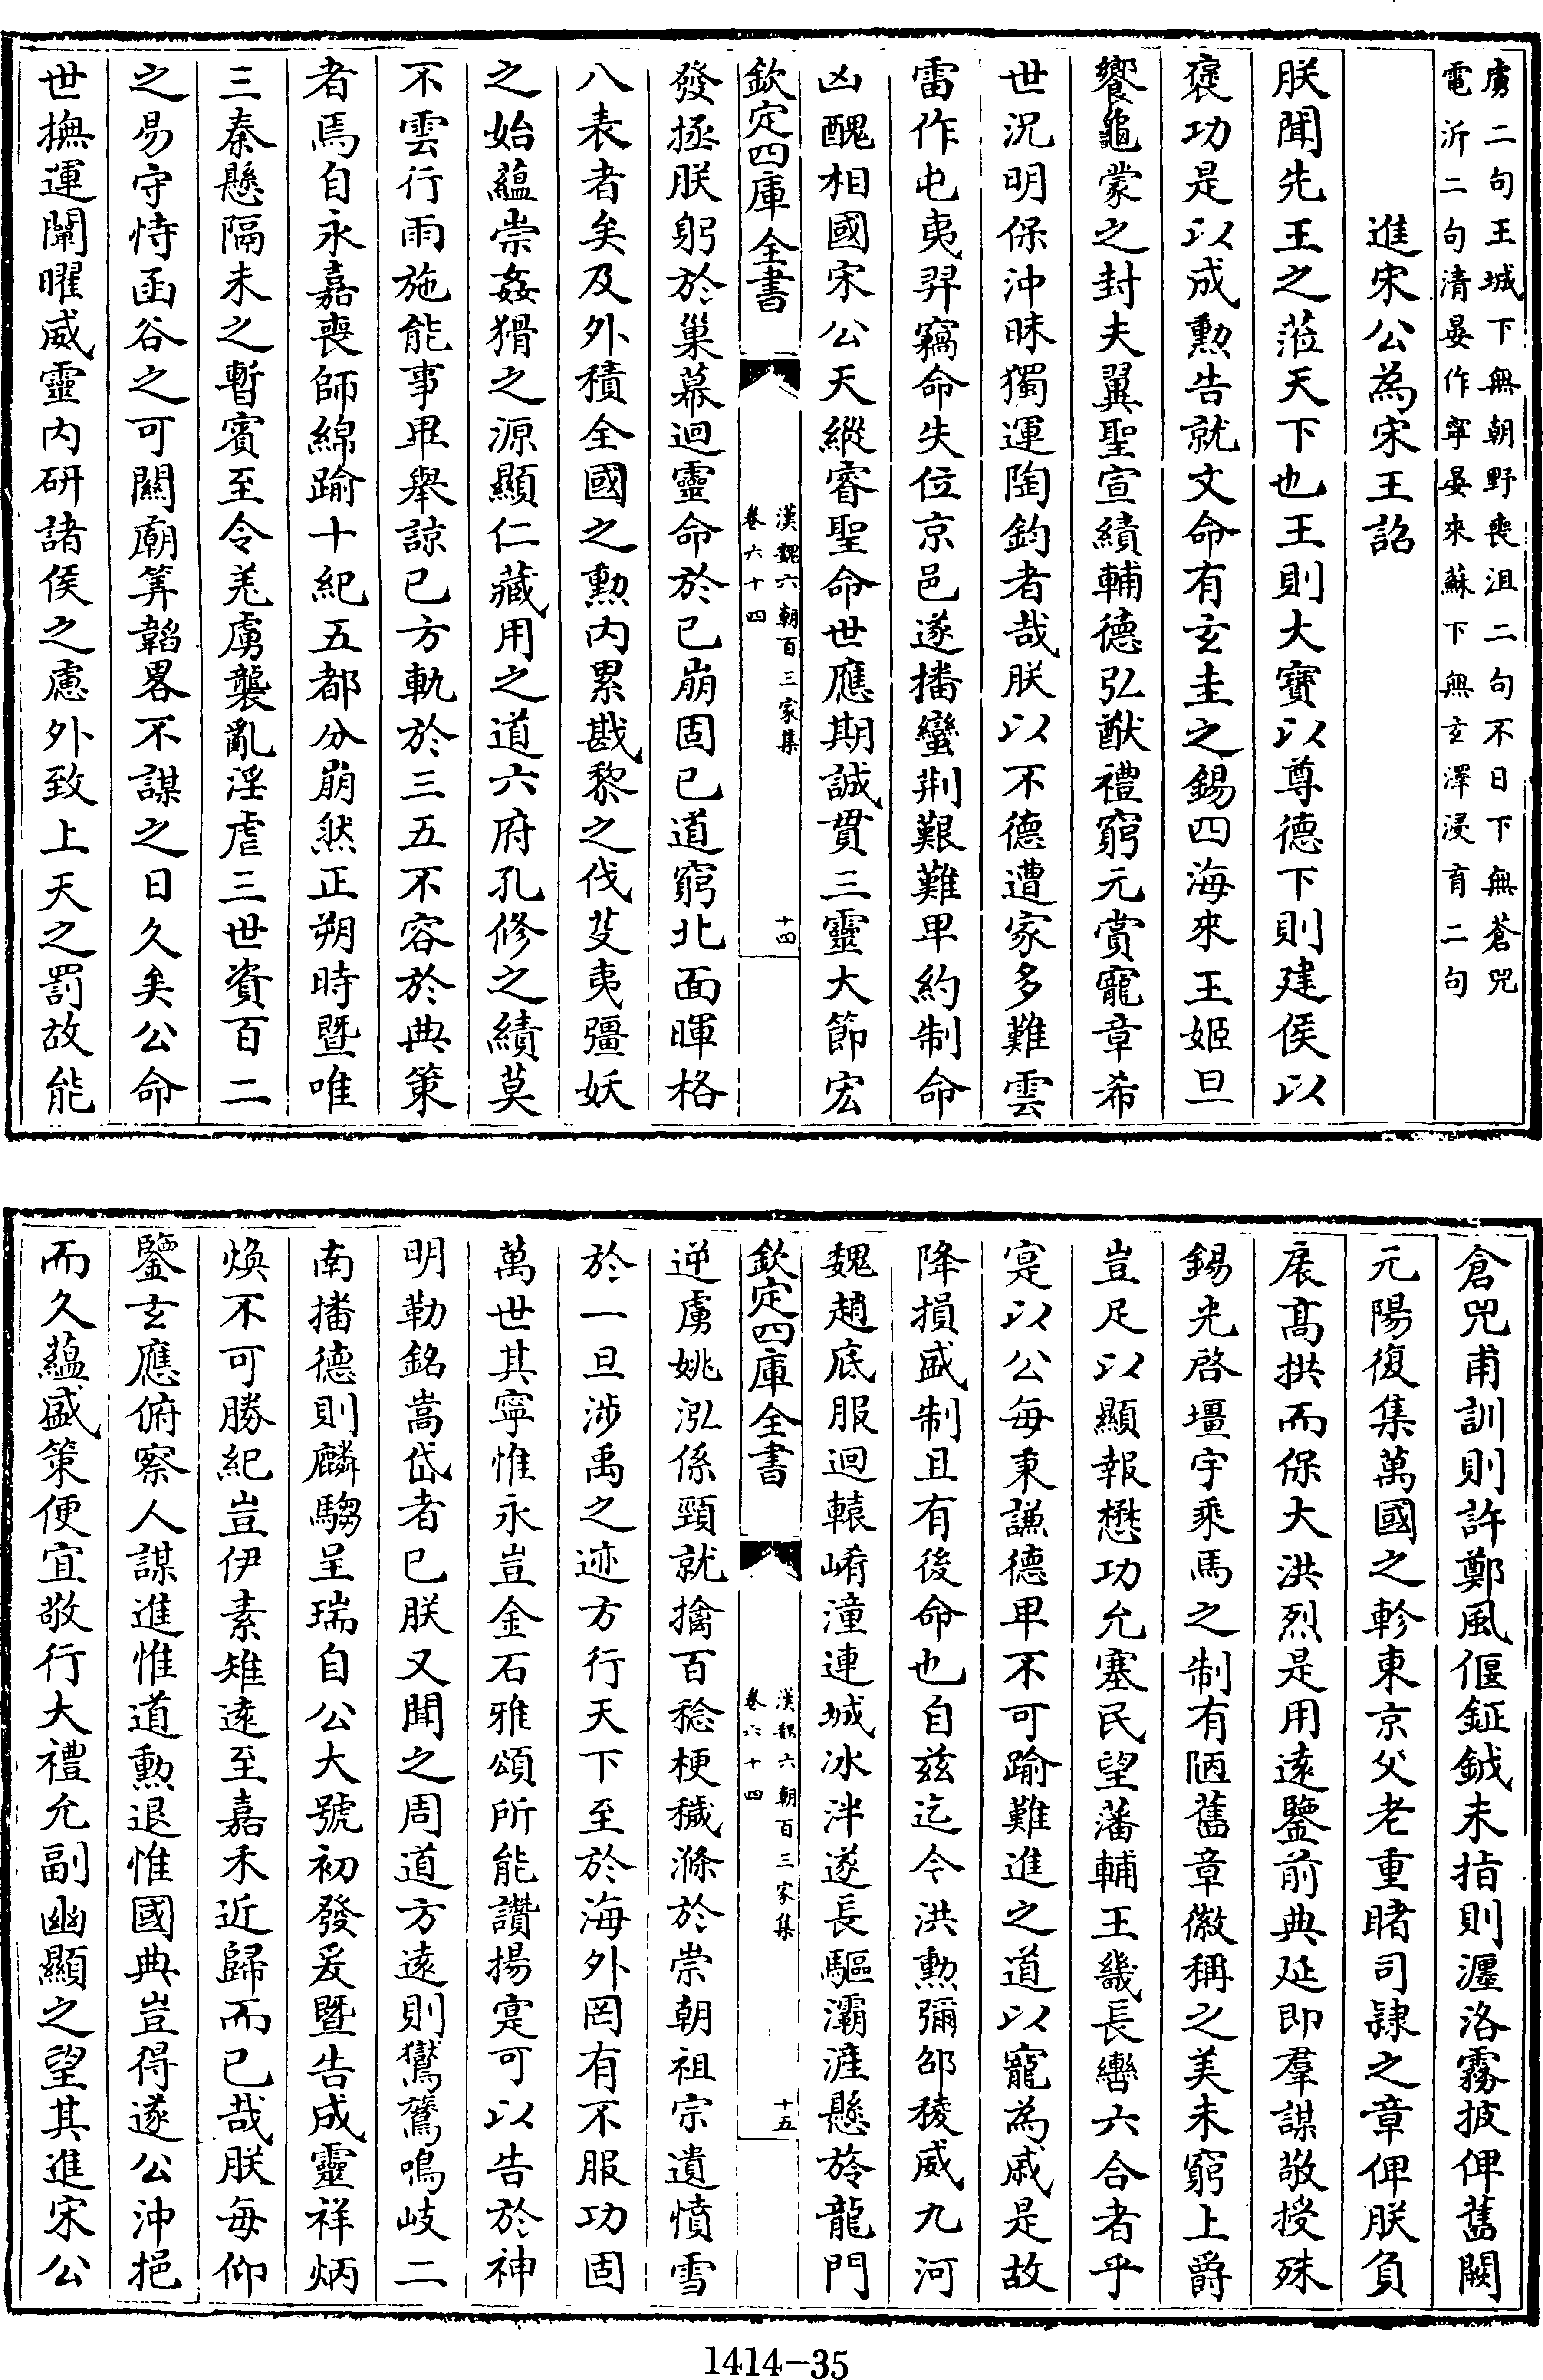 虜二句王城下無朝野喪沮二句不日下無蒼兕
電沂二句清晏作寧晏來蘇下無玄澤浸育二句
進宋公為宋王詔
朕聞先王之蒞天下也王則大寶以尊德下則建侯以
褒功是以成勲告就文命有玄圭之錫四海來王姬旦
饗龜蒙之封夫翼聖宣績輔德弘猷禮窮元賞寵章希
世況明保沖昧獨運陶鈞者哉朕以不德遭家多難雲
雷作屯夷羿竊命失位京邑遂播蠻荆艱難卑約制命
凶醜相國宋公天縱睿聖命世應期誠貫三靈大節宏
欽定四庫全書
漢魏六朝百三家集
卷六十四
十四
發拯朕躬於巢幕迴靈命於已崩固已道窮北面暉格
八表者矣及外積全國之勲内累戡黎之伐芟夷彊妖
之始藴崇姦猾之源顯仁藏用之道六府孔修之績莫
不雲行雨施能事畢舉諒已方軌於三五不容於典策
者焉自永嘉喪師綿踰十紀五都分崩然正朔時暨唯
三秦懸隔未之暫賓至令羗虜襲亂淫虐三世資百二
之易守恃函谷之可關廟筭韜畧不謀之日久矣公命
世撫運闡曜威靈内研諸侯之慮外致上天之罰故能
倉兕甫訓則許鄭風偃鉦鉞未指則瀍洛霧披俾舊闕
元陽復集萬國之軫東京父老重睹司隷之章俾朕負
扆高拱而保大洪烈是用遠鑒前典延即羣謀敬授殊
錫光啓壃宇乘馬之制有陋舊章徽稱之美未窮上爵
豈足以顯報懋功允塞民望藩輔王畿長轡六合者乎
寔以公每秉謙德卑不可踰難進之道以寵為戚是故
降損盛制且有後命也自茲迄今洪勲彌邵稜威九河
魏趙底服迴轅崤潼連城冰泮遂長驅灞滻懸旍龍門
欽定四庫全書
漢魏六朝百三家集
卷六十四
十五
逆虜姚泓係頸就擒百稔梗穢滌於崇朝祖宗遺憤雪
於一旦涉禹之迹方行天下至於海外罔有不服功固
萬世其寧惟永豈金石雅頌所能讃揚寔可以告於神
明勒銘嵩岱者已朕又聞之周道方遠則鸑鷟鳴岐二
南播德則麟騶呈瑞自公大號初發爰暨告成靈祥炳
煥不可勝紀豈伊素雉遠至嘉禾近歸而已哉朕每仰
鑒玄應俯察人謀進惟道勲退惟國典豈得遂公沖挹
而久藴盛策便宜敬行大禮允副幽顯之望其進宋公
1414-35